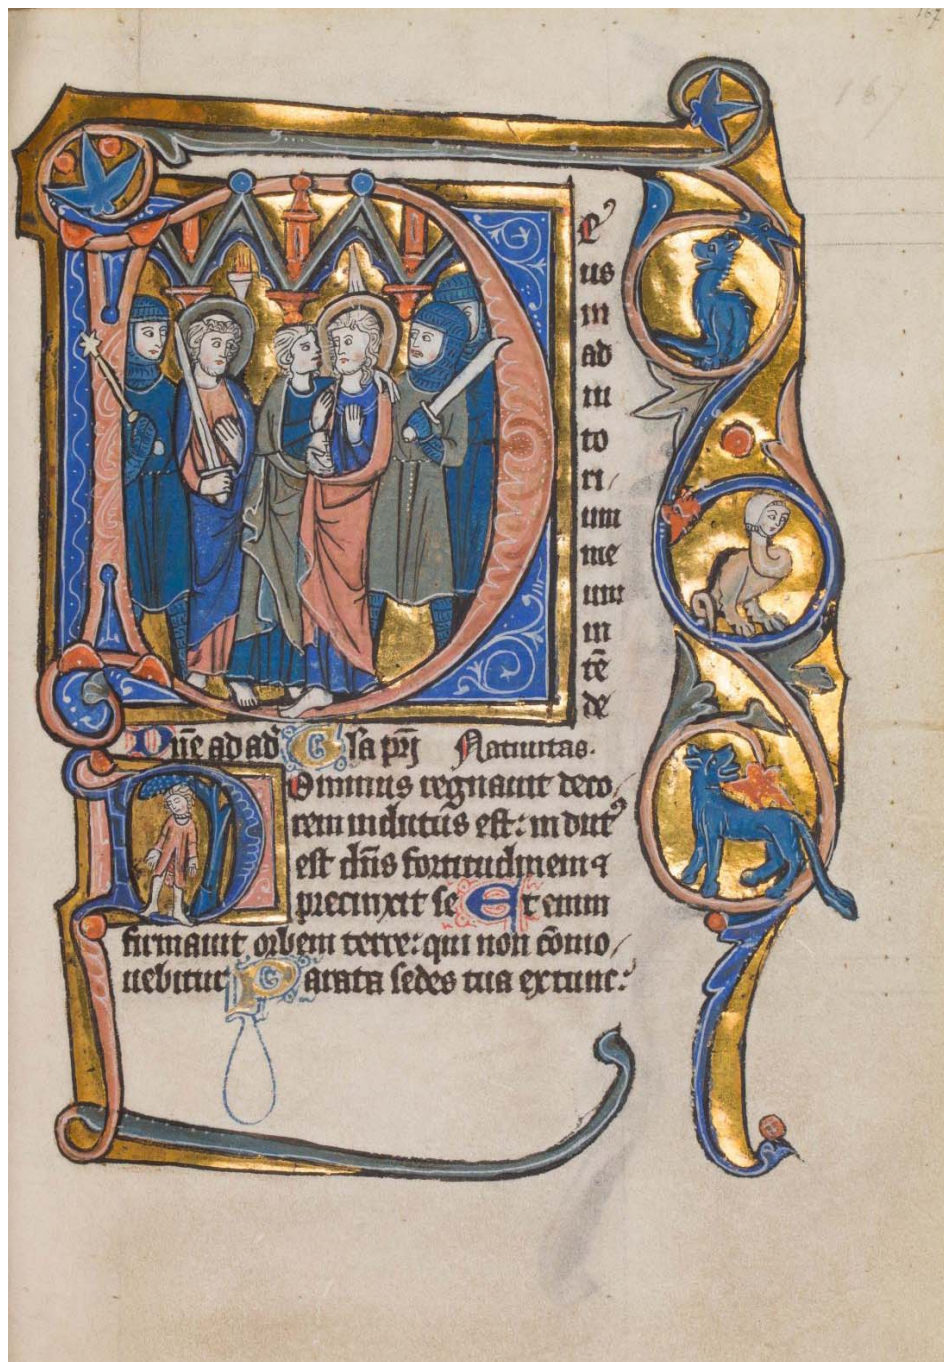 167
167
D
E
us
in
ad
iu
to
ri/
um
me
um
in
tē
de
Dn̄e ad ad' Gl̄a pr̄i Natiuitas.
Dominus regnauit deco/
rem indutus est: indutꝰ
est dn̄s fortitudinem ⁊
precinxit se Et enim
firmauit orbem terre: qui non cōmo/
uebitur Parata sedes tua extunc: